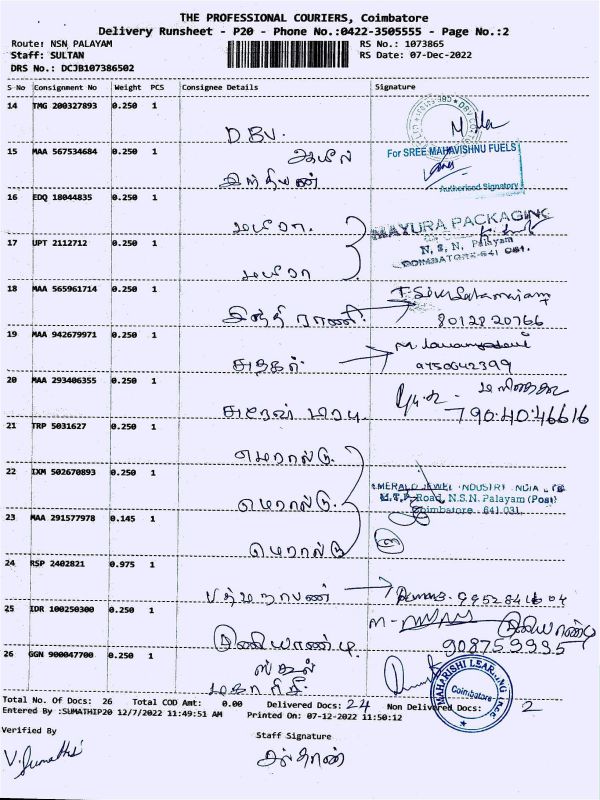 THE PROFESSIONAL COURIERS, Coimbatore
Delivery Runsheet - P20 - Phone No.:0422-3505555 - Page No.:2
Route: NSN PALAYAM
RS No.: 1073865
Staff: SULTAN
RS Date: 07-Dec-2022
DRS No.: DCJB107386502
S No Consignment No Weight PCS Consignee Details Signature
14 TMG 200327893 0.250 1
D.B.V.
15 MAA 567534684 0.250 1
For SREE MAHAVISHNU FUELS
Authorised Signatory
16 EDQ 18044835 0.250 1
MAYURA PACKAGING
17 UPT 2112712 0.250 1
N. S. N. Palayam
COIMBATORE-641 031.
18 MAA 565961714 0.250 1
இந்திராணி.
8012820766
19 MAA 942679971 0.250 1
9750642399
20 MAA 293406355 0.250 1
790.40.46616
21 TRP 5031627 0.250 1
எமரால்டு.
22 IXM 502670893 0.250 1
EMERALD JEWEL INDUSTRY INDIA
எமரால்டு.
M.T.P. Road, N.S.N. Palayam (Post)
Coimbatore 641 031.
23 MAA 291577978 0.145 1
எமரால்டு
3
24 RSP 2402821 0.975 1
பத்மநாபன்
9952841604
25 IDR 100250300 0.250 1
26 GGN 900047700 0.250 1
MAHARISHI LEARNING
Coimbatore
Total No. Of Docs: 26 Total COD Amt: 0.00 Delivered Docs: 24 Non Delivered Docs: 2
Entered By :SUMATHIP20 12/7/2022 11:49:51 AM Printed On: 07-12-2022 11:50:12
Verified By
Staff Signature
V. Sumathi
சுல்தான்